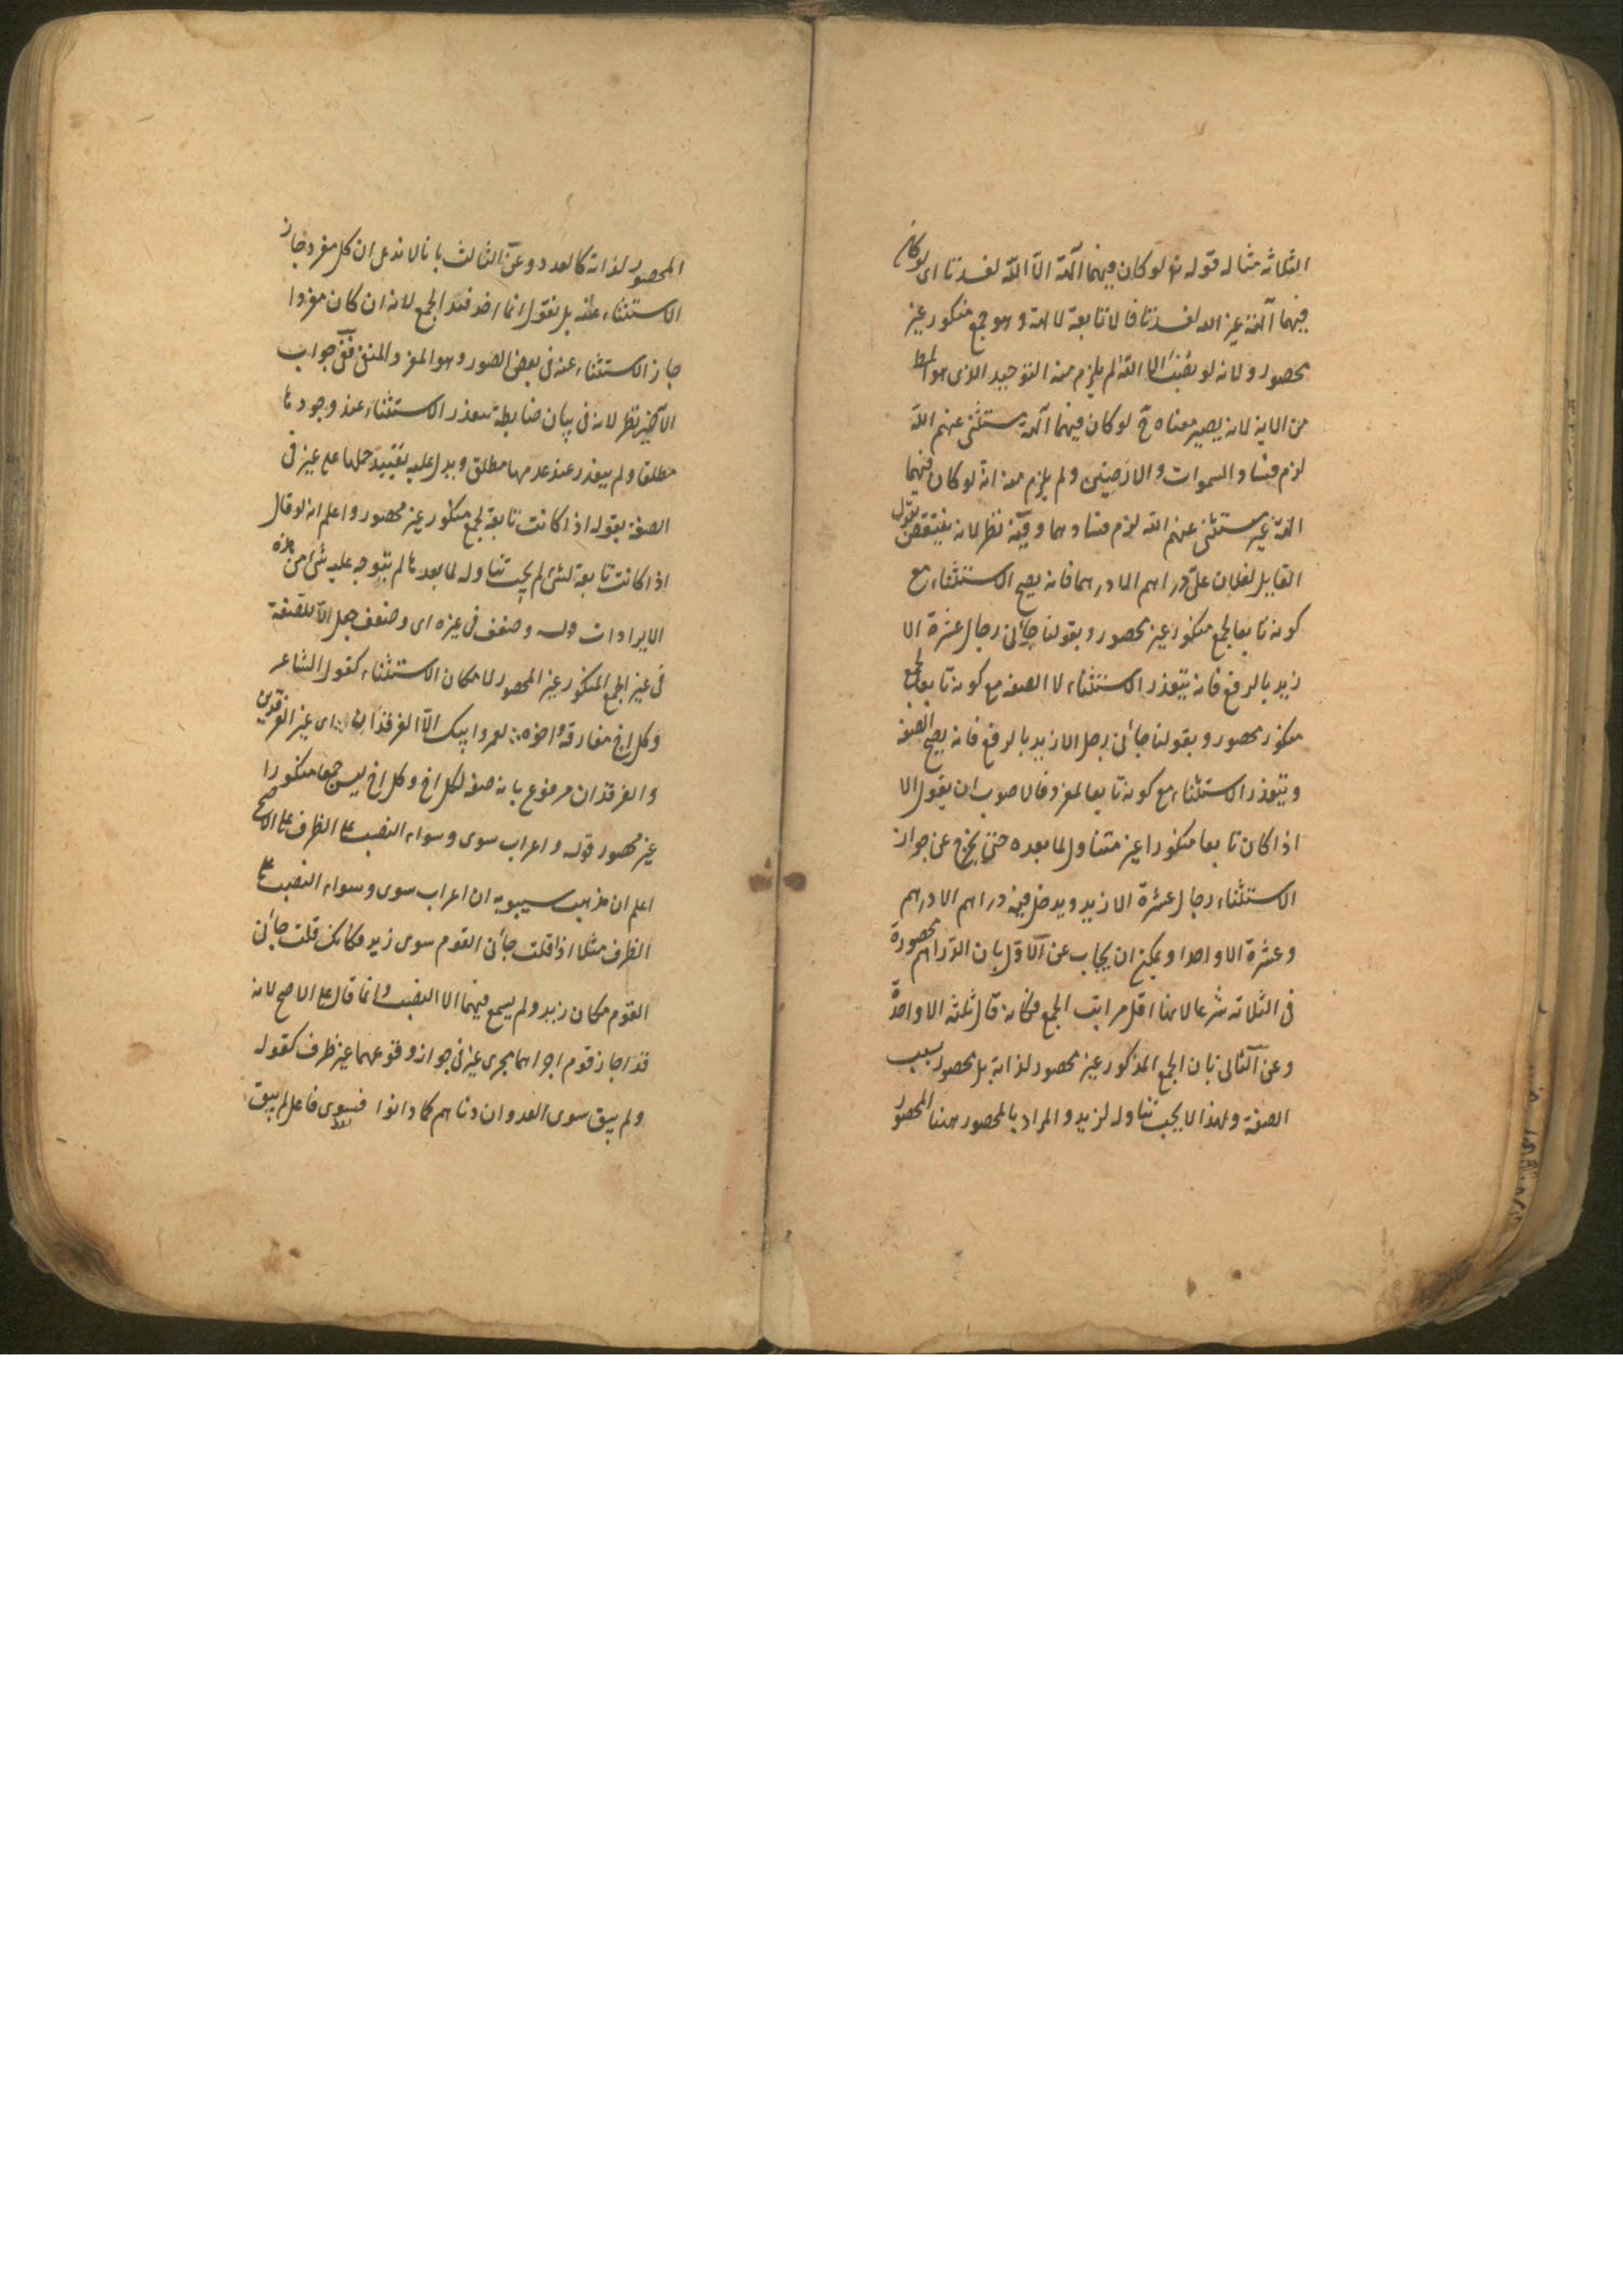 الثلاثة مثاله قوله تع لو كان فيهما آلهة الا الله لفسدتا اى لو كان
فيهما آلهة غير الله لفسدتا فالا تابعة لالهة وهو جمع منكور غير
محصور ولانه لو نصبت الا الله لم يلزم منه التوحيد الذى هو المط
من الاية لانه يصير معناه ح لو كان فيهما آلهة مستثنى عنهم الله
لزم فساد السموات والارضين ولم يلزم منه انه لو كان فيهما
الهة غير مستثنى عنهم الله لزم فسادهما وفيه نظر لانه ينتقض بقول
القايل لفلان على دراهم الا درهما فانه يصح الاستثناء مع
كونه تابعا لجمع منكور غير محصور وبقولنا جائنى رجال عشرة الا
زيد بالرفع فانه يتعذر الاستثناء لا الصفه مع كونه تابعا لجمع
منكور محصور وبقولنا جائنى رجل الا زيد بالرفع فانه يصح الصفه
ويتعذر الاستثناء مع كونه تابعا لمفرد فالاصوب ان يقول الا
اذا كان تابعا منكورا غير متناول لما بعده حتى يخرج عن جواز
الاستثناء رجال عشرة الا زيد ويدخل فيه دراهم الا درهم
وعشرة الا واحدا ويمكن ان يجاب عن الاول بان الدراهم محصورة
فى الثلاثه شرعا لانها اقل مراتب الجمع فكانه قال ثلثه الا واحدة
وعن الثانى بان الجمع المذكور غير محصور لذاته بل محصور بسبب
الصفة ولهذا لا يجب تناوله لزيد والمراد بالمحصور ههنا المحصور
المحصور لذاته كالعدد وعن الثالث بانا لا ندعى ان كل مفرد جاز
الاستثناء عنه بل نقول انما اخذ قيد الجمع لانه ان كان مفردا
جاز الاستثناء عنه فى بعض الصور وهو المفرد المنفى ففى جواب
الاخير نظر لانه فى بيان ضابطة تعذر الاستثناء عند وجودها
مطلقا ولم يتعذر عند عدمها مطلق ويدل عليه تقييد حملها على غير فى
الصفة بقوله اذا كانت تابعة لجمع منكور غير محصور واعلم انه لو قال
اذا كانت تابعة لشئ لم يجب تناوله لما بعدها لم يتوجه عليه شئ من هذه
الايرادات قوله وضعف فى غيره اى وضعف جعل الا للصفة
فى غير الجمع المنكور غير المحصور لامكان الاستثناء كقول الشاعر
وكل اخ مفارقه اخوه ∴ لعمر ابيك الا الفرقدان ∴ اى غير الفرقدين
والفرقدان مرفوع بانه صفه لكل اخ وكل اخ ليس جمعا منكورا
غير محصور قوله واعراب سوى وسواء النصب على الظرف على الاصح
اعلم ان مذهب سيبويه ان اعراب سوى وسواء النصب على
الظرف مثلا اذا قلت جائنى القوم سوى زيد فكانك قلت جائنى
القوم مكان زيد ولم يسمع فيهما الا النصب وانما قال على الاصح لانه
قد اجاز قوم اجراهما مجرى غير فى جواز وقوعهما غير ظرف كقوله
ولم يبق سوى العدوان دناهم كما دانوا فسوى فاعل لم يبق